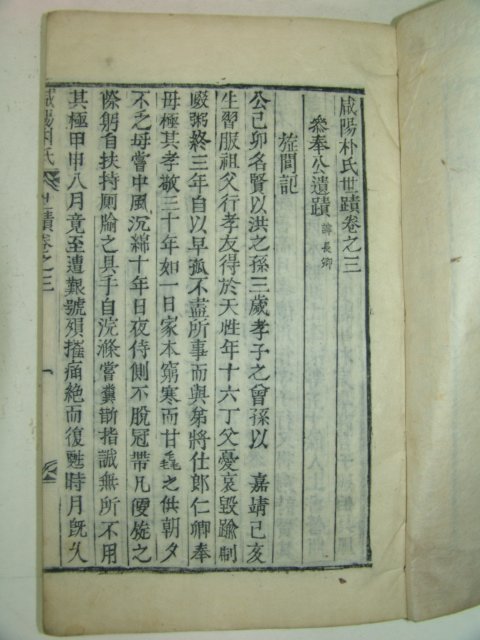 咸陽朴氏世蹟卷之三
參奉公遺蹟 諱長卿
旌閭記
公己卯名賢以洪之孫三歲孝子之曾孫以 嘉靖己亥
生習服祖父行孝友得於天性年十六丁父憂哀毁踰制
啜粥終三年自以早孤不盡所事而與弟將仕郎仁卿奉
母極其孝敬三十年如一日家本窮寒而甘毳之供朝夕
不乏母嘗中風沉綿十年日夜侍側不脫冠帶凡便旋之
際躬自扶持厠牏之具手自浣滌嘗糞斷指誠無所不用
其極甲申八月竟至遭艱號殞擗痛絶而復甦時月旣久
咸陽朴氏世蹟卷之三 一